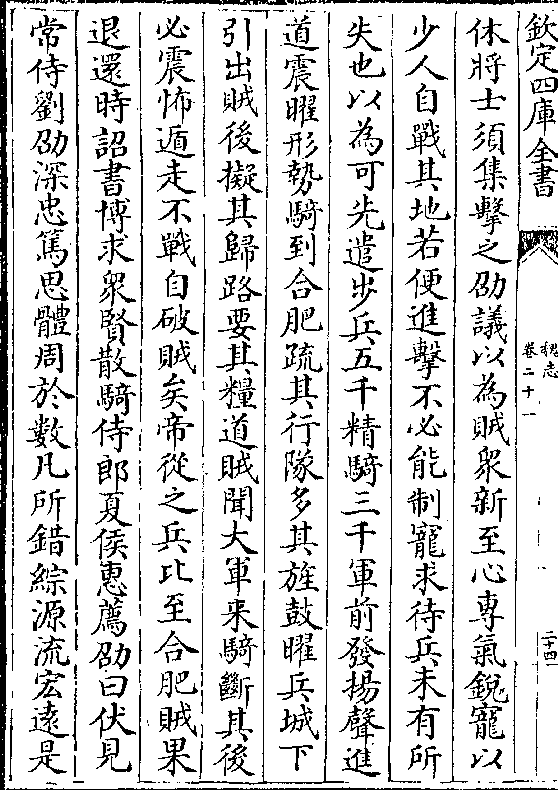 欽定四庫全書
魏志
卷二十一
二十四
休將士須集擊之劭議以為賊衆新至心專氣銳寵以
少人自戰其地若便進擊不必能制寵求待兵未有所
失也以為可先遣步兵五千精騎三千軍前發揚聲進
道震曜形勢騎到合肥疏其行隊多其旌鼓曜兵城下
引出賊後擬其歸路要其糧道賊聞大軍来騎斷其後
必震怖遁走不戰自破賊矣帝從之兵比至合肥賊果
退還時詔書博求衆賢散騎侍郎夏侯惠薦劭曰伏見
常侍劉劭深忠篤思體周於數凡所錯綜源流宏遠是